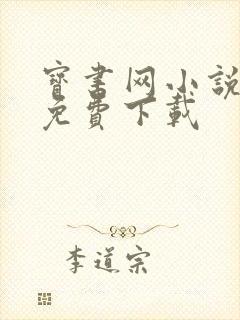 寳書网小説
免費下載
李道宗